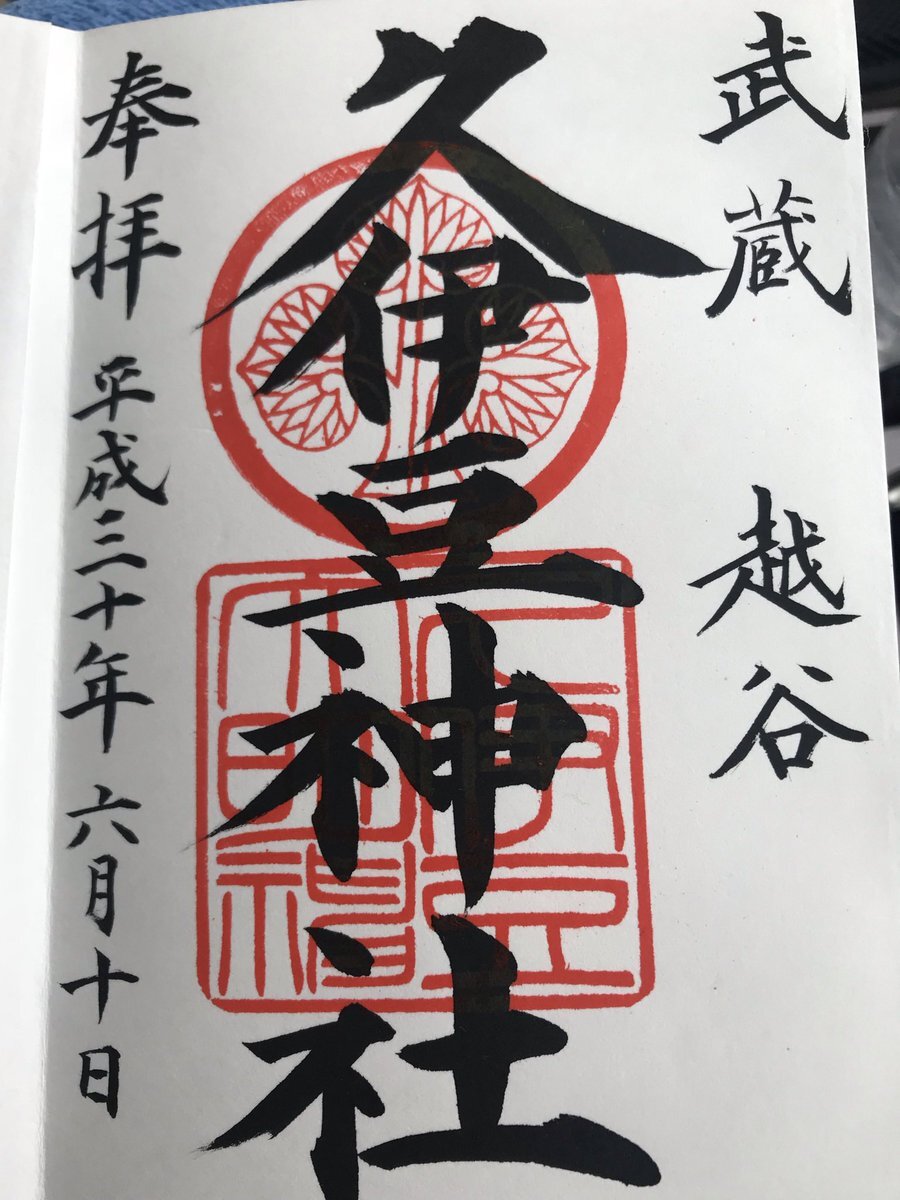 武蔵 越谷
久伊豆神社
奉拝 平成三十年 六月十日